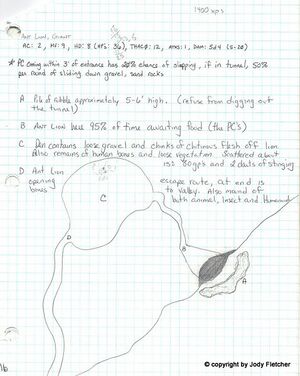 1400 xps
Ant Lion, Giant
AC: 2, MV: 9, HD: 8 (HPs: 36), THAC0: 12, AMS: 1, DAM: 5d4 (5-20)
* PC coming within 3' of entrance has 20% chance of slipping, if in tunnel, 50%
per round of sliding down gravel, sand rocks
A Pile of rubble approximately 5-6' high. (refuse from digging out
the tunnel)
B Ant Lion here 95% of time awaiting food (the PC's)
C Den contains loose gravel and chunks of chitinous flesh off lion
Also remains of human bones and loose vegetation. Scattered about
is: 80gp's and 2 darts of stinging
D Ant Lion escape route, at end is
opening to valley. Also mound of
bones both animal, insect and Humanoid
C
D
B
A
16
© copyright by Jody Fletcher